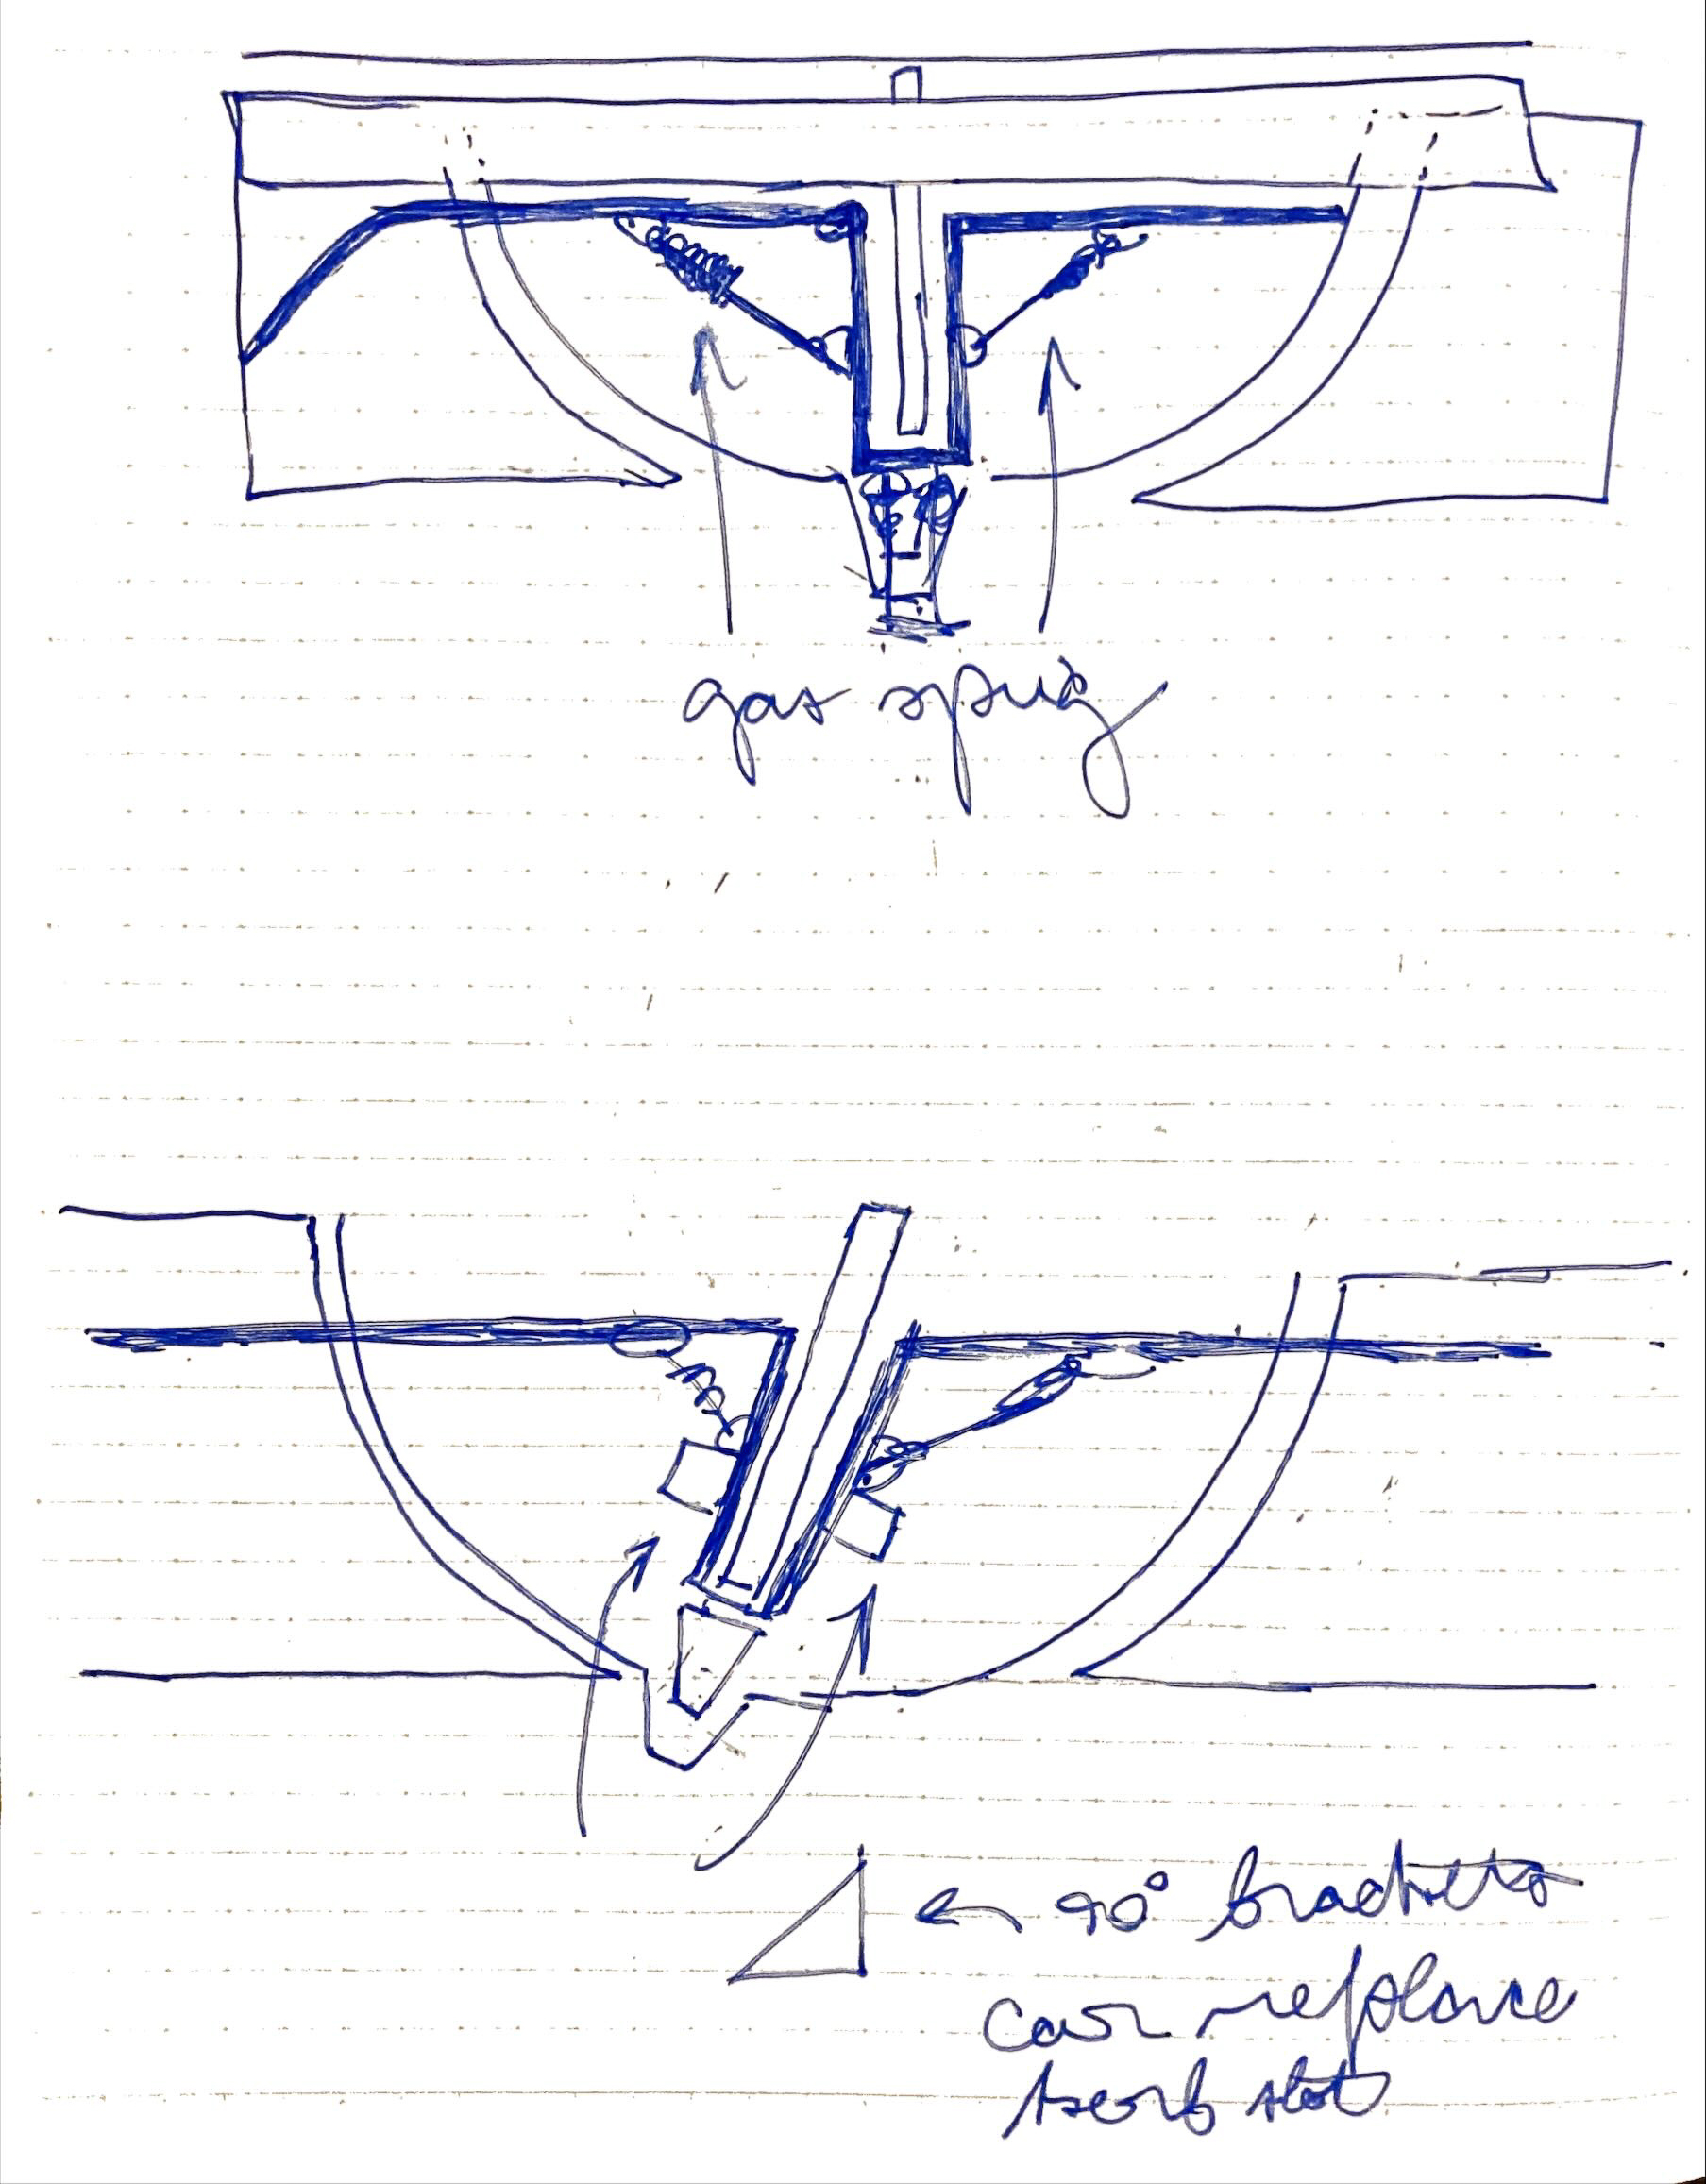 gas spring
← 90° brackets
can replace
slot